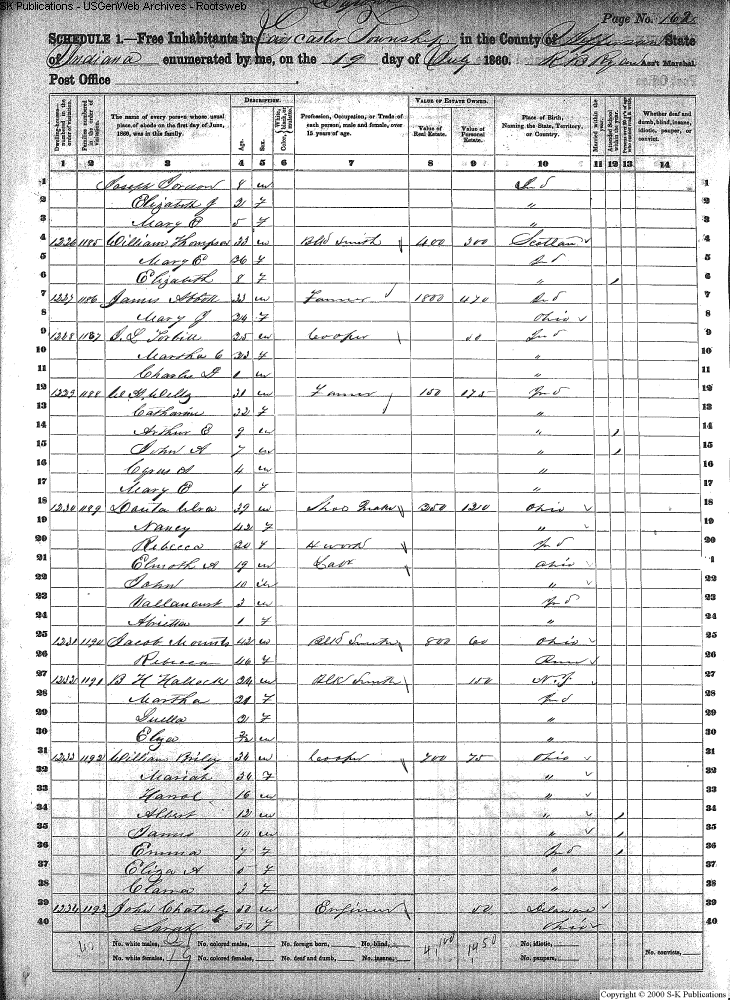 S-K Publications - USGenWeb Archives - Rootsweb
Page No. 162
SCHEDULE 1.—Free Inhabitants in Lancaster Township in the County of Jefferson State
of Indiana enumerated by me, on the 19 day of July 1860. Ass't Marshal.
Post Office
Dwelling-houses—numbered in the order of visitation.
Families numbered in the order of visitation.
The name of every person whose usual place of abode on the first day of June, 1860, was in this family.
DESCRIPTION.
Age.
Sex.
Color, { White, black, or mulatto.
Profession, Occupation, or Trade of each person, male and female, over 15 years of age.
VALUE OF ESTATE OWNED.
Value of Real Estate.
Value of Personal Estate.
Place of Birth, Naming the State, Territory, or Country.
Married within the year.
Attended School within the year.
Whether deaf and dumb, blind, insane, idiotic, pauper, or convict.
1 2 3 4 5 6 7 8 9 10 11 12 13 14
1 Joseph 8 m Ind 1
2 Elizabeth J 2 f " 2
3 Mary E 5 f " 3
4 1226 1185 William Thompson 33 m Blk Smith 400 300 Scotland 4
5 Mary E 36 f Ind 5
6 Elizabeth 8 f " 6
7 1227 1186 James Abbott 23 m Farmer 1800 470 Ind 7
8 Mary J 24 f Ohio 8
9 1228 1187 25 m Cooper 50 Ind 9
10 Martha C 23 f " 10
11 Charles 1 m " 11
12 1229 1188 31 m Farmer 150 175 Ind 12
13 Catharine 32 f " 13
14 Arthur E 9 m " 14
15 John A 7 m " 15
16 Cyrus A 4 m " 16
17 Mary E 1 f " 17
18 1230 1189 39 m Shoe Maker 250 120 Ohio 18
19 Nancy 42 f " 19
20 Rebecca 20 f H work Ind 20
21 19 m Labr Ohio 21
22 John 10 m " 22
23 3 m Ind 23
24 1 f " 24
25 1231 1190 Jacob Mounts 42 m Blk Smith 800 60 Ohio 25
26 Rebecca 46 f 26
27 1232 1191 B H Hallock 24 m Blk Smith 150 N.J. 27
28 Martha 21 f Ind 28
29 Luella 2 f " 29
30 Elza m " 30
31 1233 1192 William Briley 34 m Cooper 700 75 Ohio 31
32 Mariah 34 f " 32
33 16 m " 33
34 Albert 12 m " 34
35 James 10 m " 35
36 Emma 7 f Ind 36
37 Eliza A 5 f " 37
38 3 f " 38
39 1234 1193 John 50 m Engineer 50 Delaware 39
40 Sarah 50 f Ohio 40
No. white males, No. colored males, No. foreign born, No. blind, 4,100 1450 No. idiotic, No. convicts,
No. white females, 19 No. colored females, No. deaf and dumb, No. insane, No. paupers,
Copyright © 2000 S-K Publications